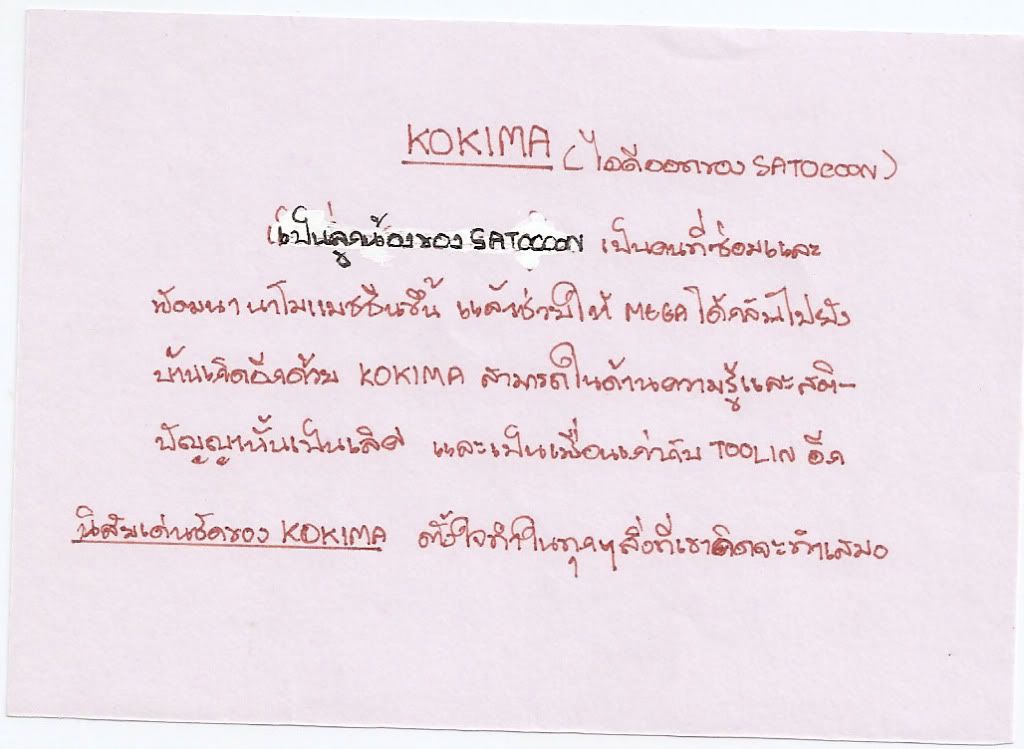 KOKIMA (ไอดีออกของ SATOCOON)
(เป็นลูกน้องของ SATOCOON เป็นคนที่ซ่อมและ
พัฒนา นาโนแมชชีนขึ้น แล้วช่วยให้ MEGA ได้กลับไปยัง
บ้านเกิดอีกด้วย KOKIMA สามารถในด้านความรู้และสติ-
ปัญญานั้นเป็นเลิศ และเป็นเพื่อนเก่ากับ TOOLIN อีก
นิสัยเด่นชัดของ KOKIMA ตั้งใจทำในทุกๆสิ่งที่เขาคิดจะทำเสมอ